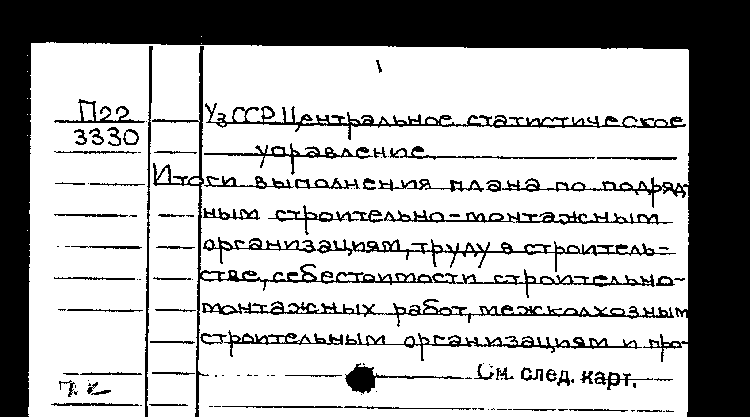 П22
3330
УзССР Центральное статистическое
управление.
Итоги выполнения плана по подряд-
ным строительно-монтажным
организациям, труду в строитель=
стве, себестоимости строительно-
монтажных работ, межколхозным
строительным организациям и про-
См. след. карт.